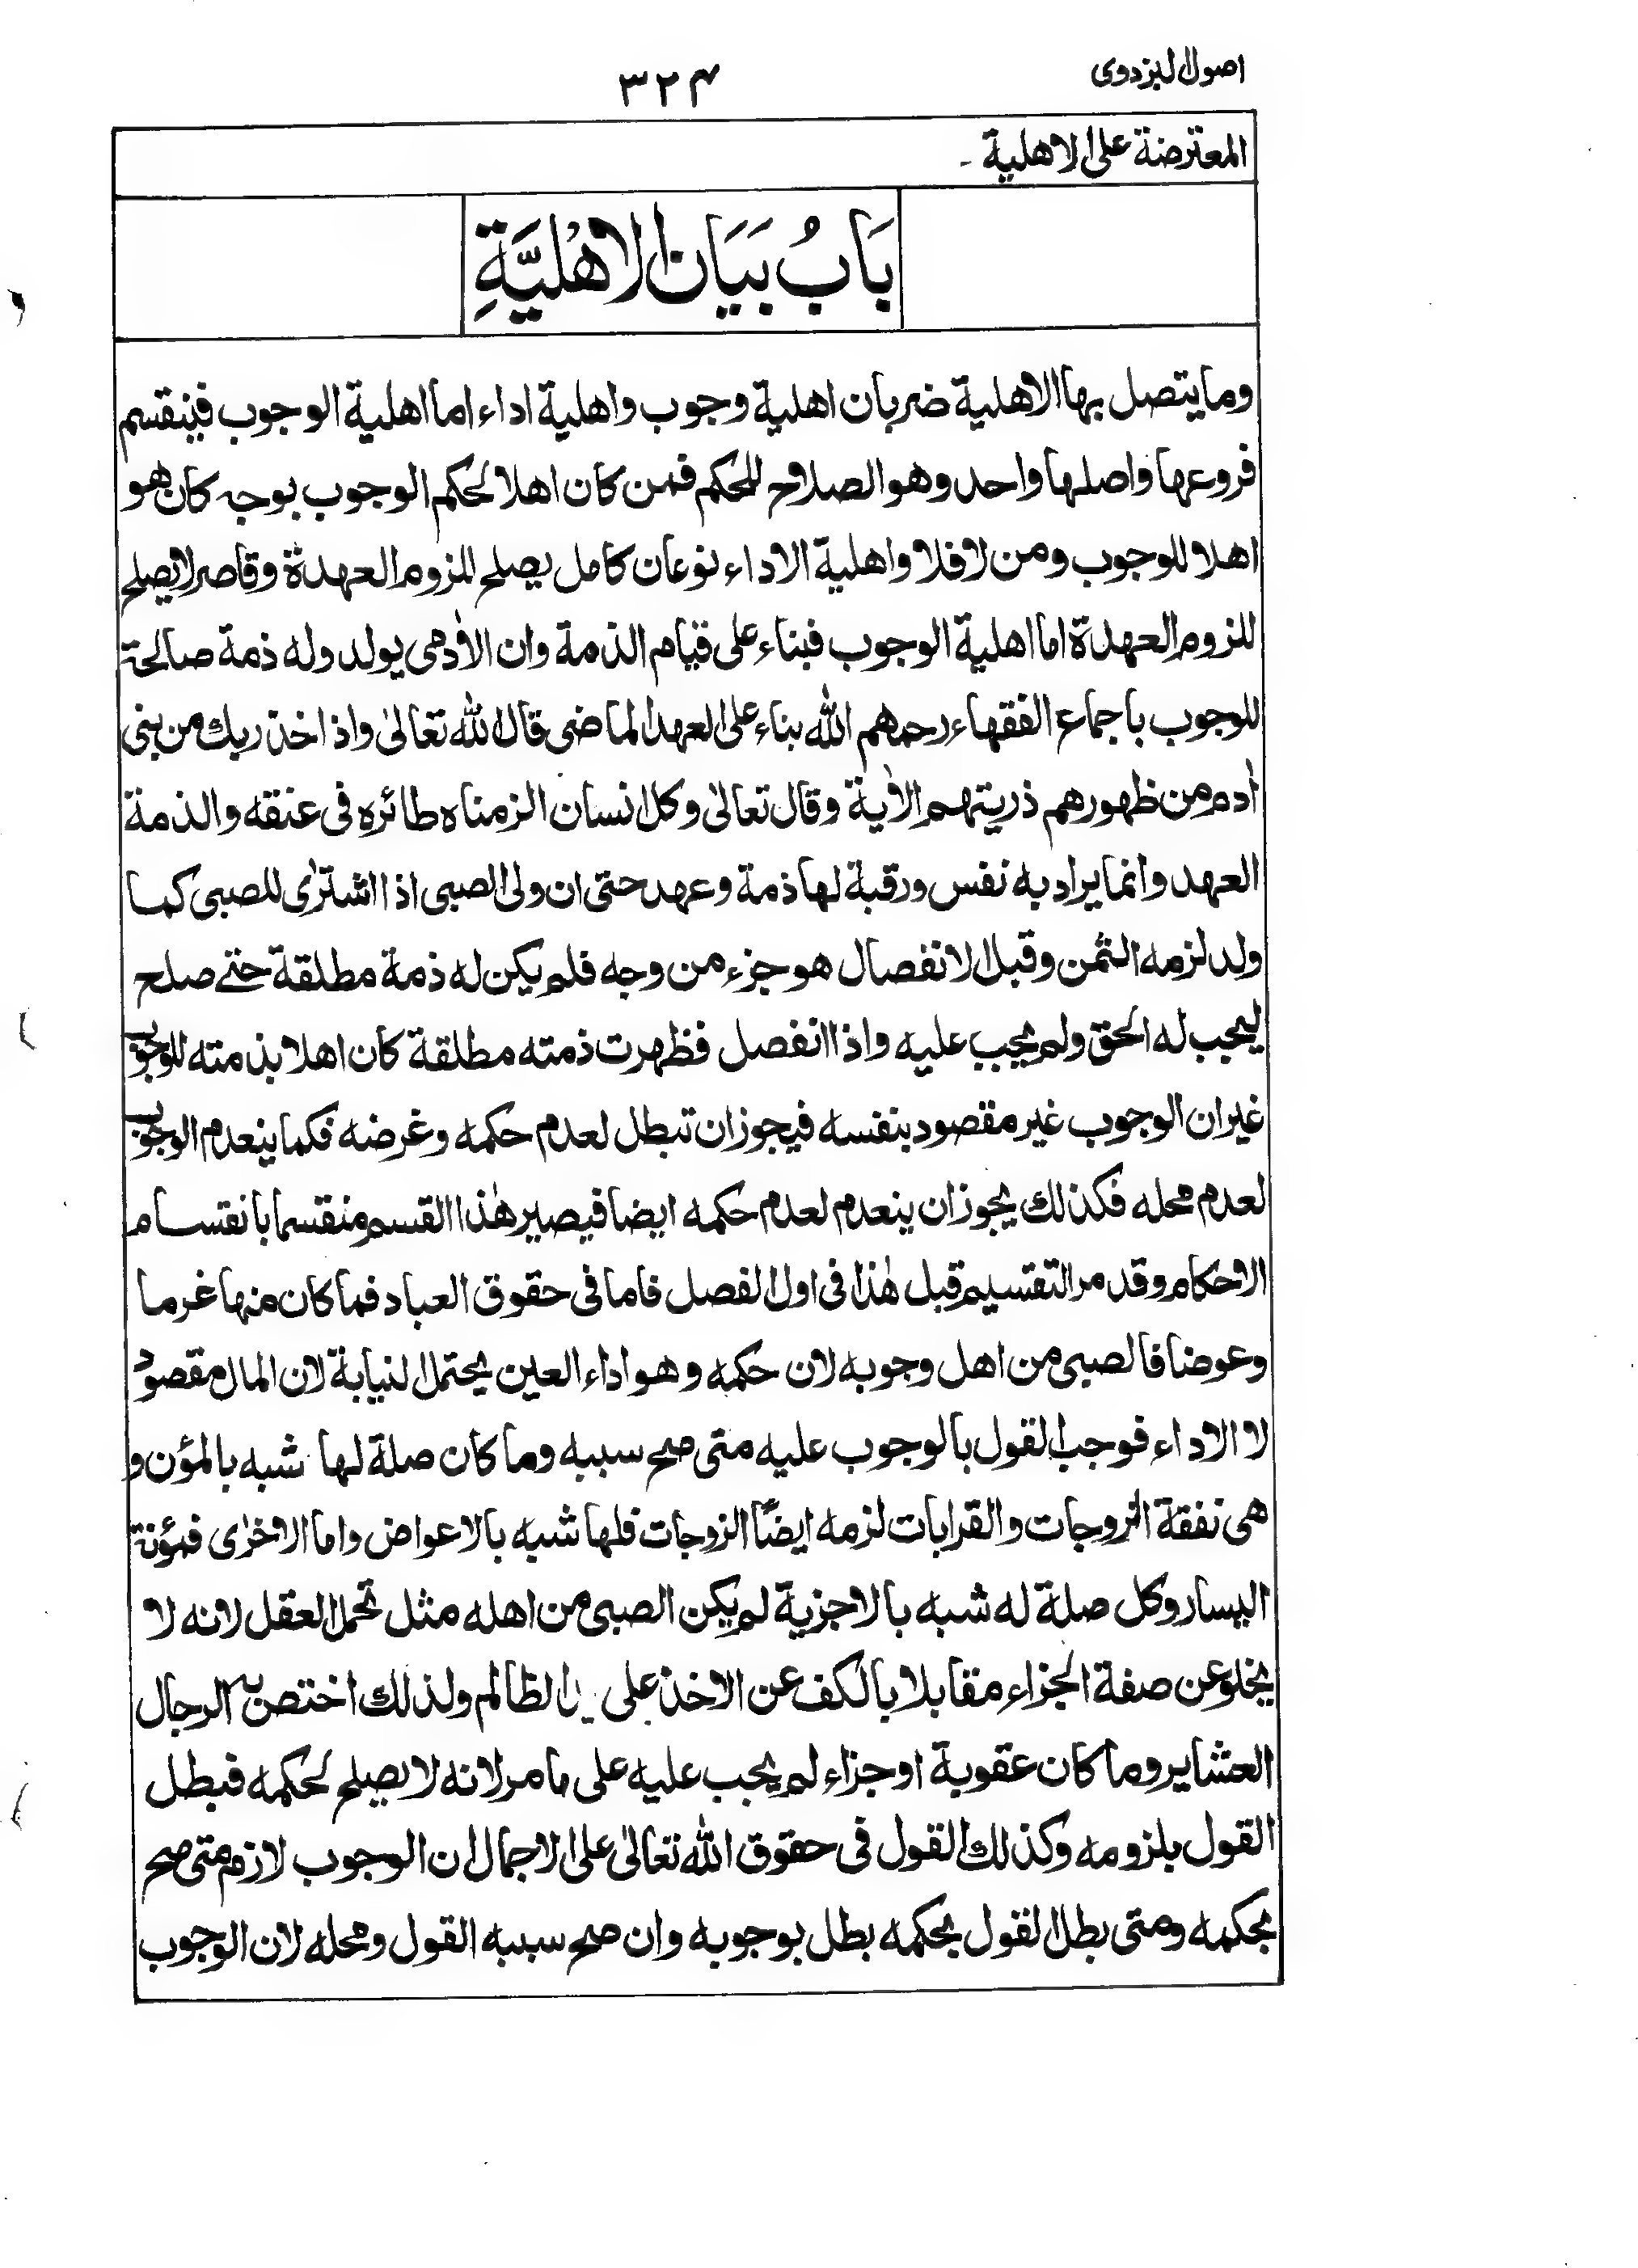 اصول البزدوی
۳۲۴
المعترضة على الاهلية -
بَابُ بَيَان الاهْلِيَّةِ
وما يتصل بها الاهلية ضربان اهلية وجوب واهلية اداء اما اهلية الوجوب فينقسم
فروعها واصلها واحد وهو الصلاح للحكم فمن كان اهلا لحكم الوجوب بوجه كان هو
اهلا للوجوب ومن لا فلا واهلية الاداء نوعان كامل يصلح للزوم العهدة وقاصر لا يصلح
للزوم العهدة اما اهلية الوجوب فبناء على قيام الذمة وان الاٰدمى يولد وله ذمة صالحة
للوجوب باجماع الفقهاء رحمهم الله بناء على العهد الماضى قال الله تعالىٰ واذ اخذ ربك من بنى
اٰدم من ظهورهم ذريتهم الاٰية وقال تعالىٰ وكل انسان الزمناه طائره فى عنقه والذمة
العهد وانما يراد به نفس ورقبة لها ذمة وعهد حتى ان ولى الصبى اذا اشترٰى للصبى كما
ولد لزمه الثمن وقبل الانفصال هو جزء من وجه فلم يكن له ذمة مطلقة حتے صلح
ليجب له الحق ولم يجب عليه واذا انفصل فظهرت ذمته مطلقة كان اهلا بذمته للوجوب
غير ان الوجوب غير مقصود بنفسه فيجوز ان تبطل لعدم حكمه وغرضه فكما ينعدم الوجوب
لعدم محله فكذلك يجوز ان ينعدم لعدم حكمه ايضا فيصير هٰذا القسم منقسما بانقسام
الاحكام وقد مر التقسيم قبل هٰذا فى اول الفصل فاما فى حقوق العباد فما كان منها غرما
وعوضا فالصبى من اهل وجوبه لان حكمه وهو اداء العين يحتمل النيابة لان المال مقصود
لا الاداء فوجب القول بالوجوب عليه متى صح سببه وما كان صلة لها شبه بالمؤن و
هى نفقة الزوجات والقرابات لزمه ايضًا الزوجات فلها شبه بالاعواض واما الاخرٰى فمؤنة
اليسار وكل صلة له شبه بالاجزية لم يكن الصبى من اهله مثل تحمل العقل لانه لا
يخلو عن صفة الجزاء مقابلا بالكف عن الاخذ على الظالم ولذلك اختص به الرجال
العشاير وما كان عقوبة او جزاء لم يجب عليه على ما مر لانه لا يصلح لحكمه فبطل
القول بلزومه وكذلك القول فى حقوق الله تعالىٰ على الاجمال ان الوجوب لازم متى صح
بحكمه ومتى بطل القول بحكمه بطل بوجوبه وان صح سببه القول ومحله لان الوجوب